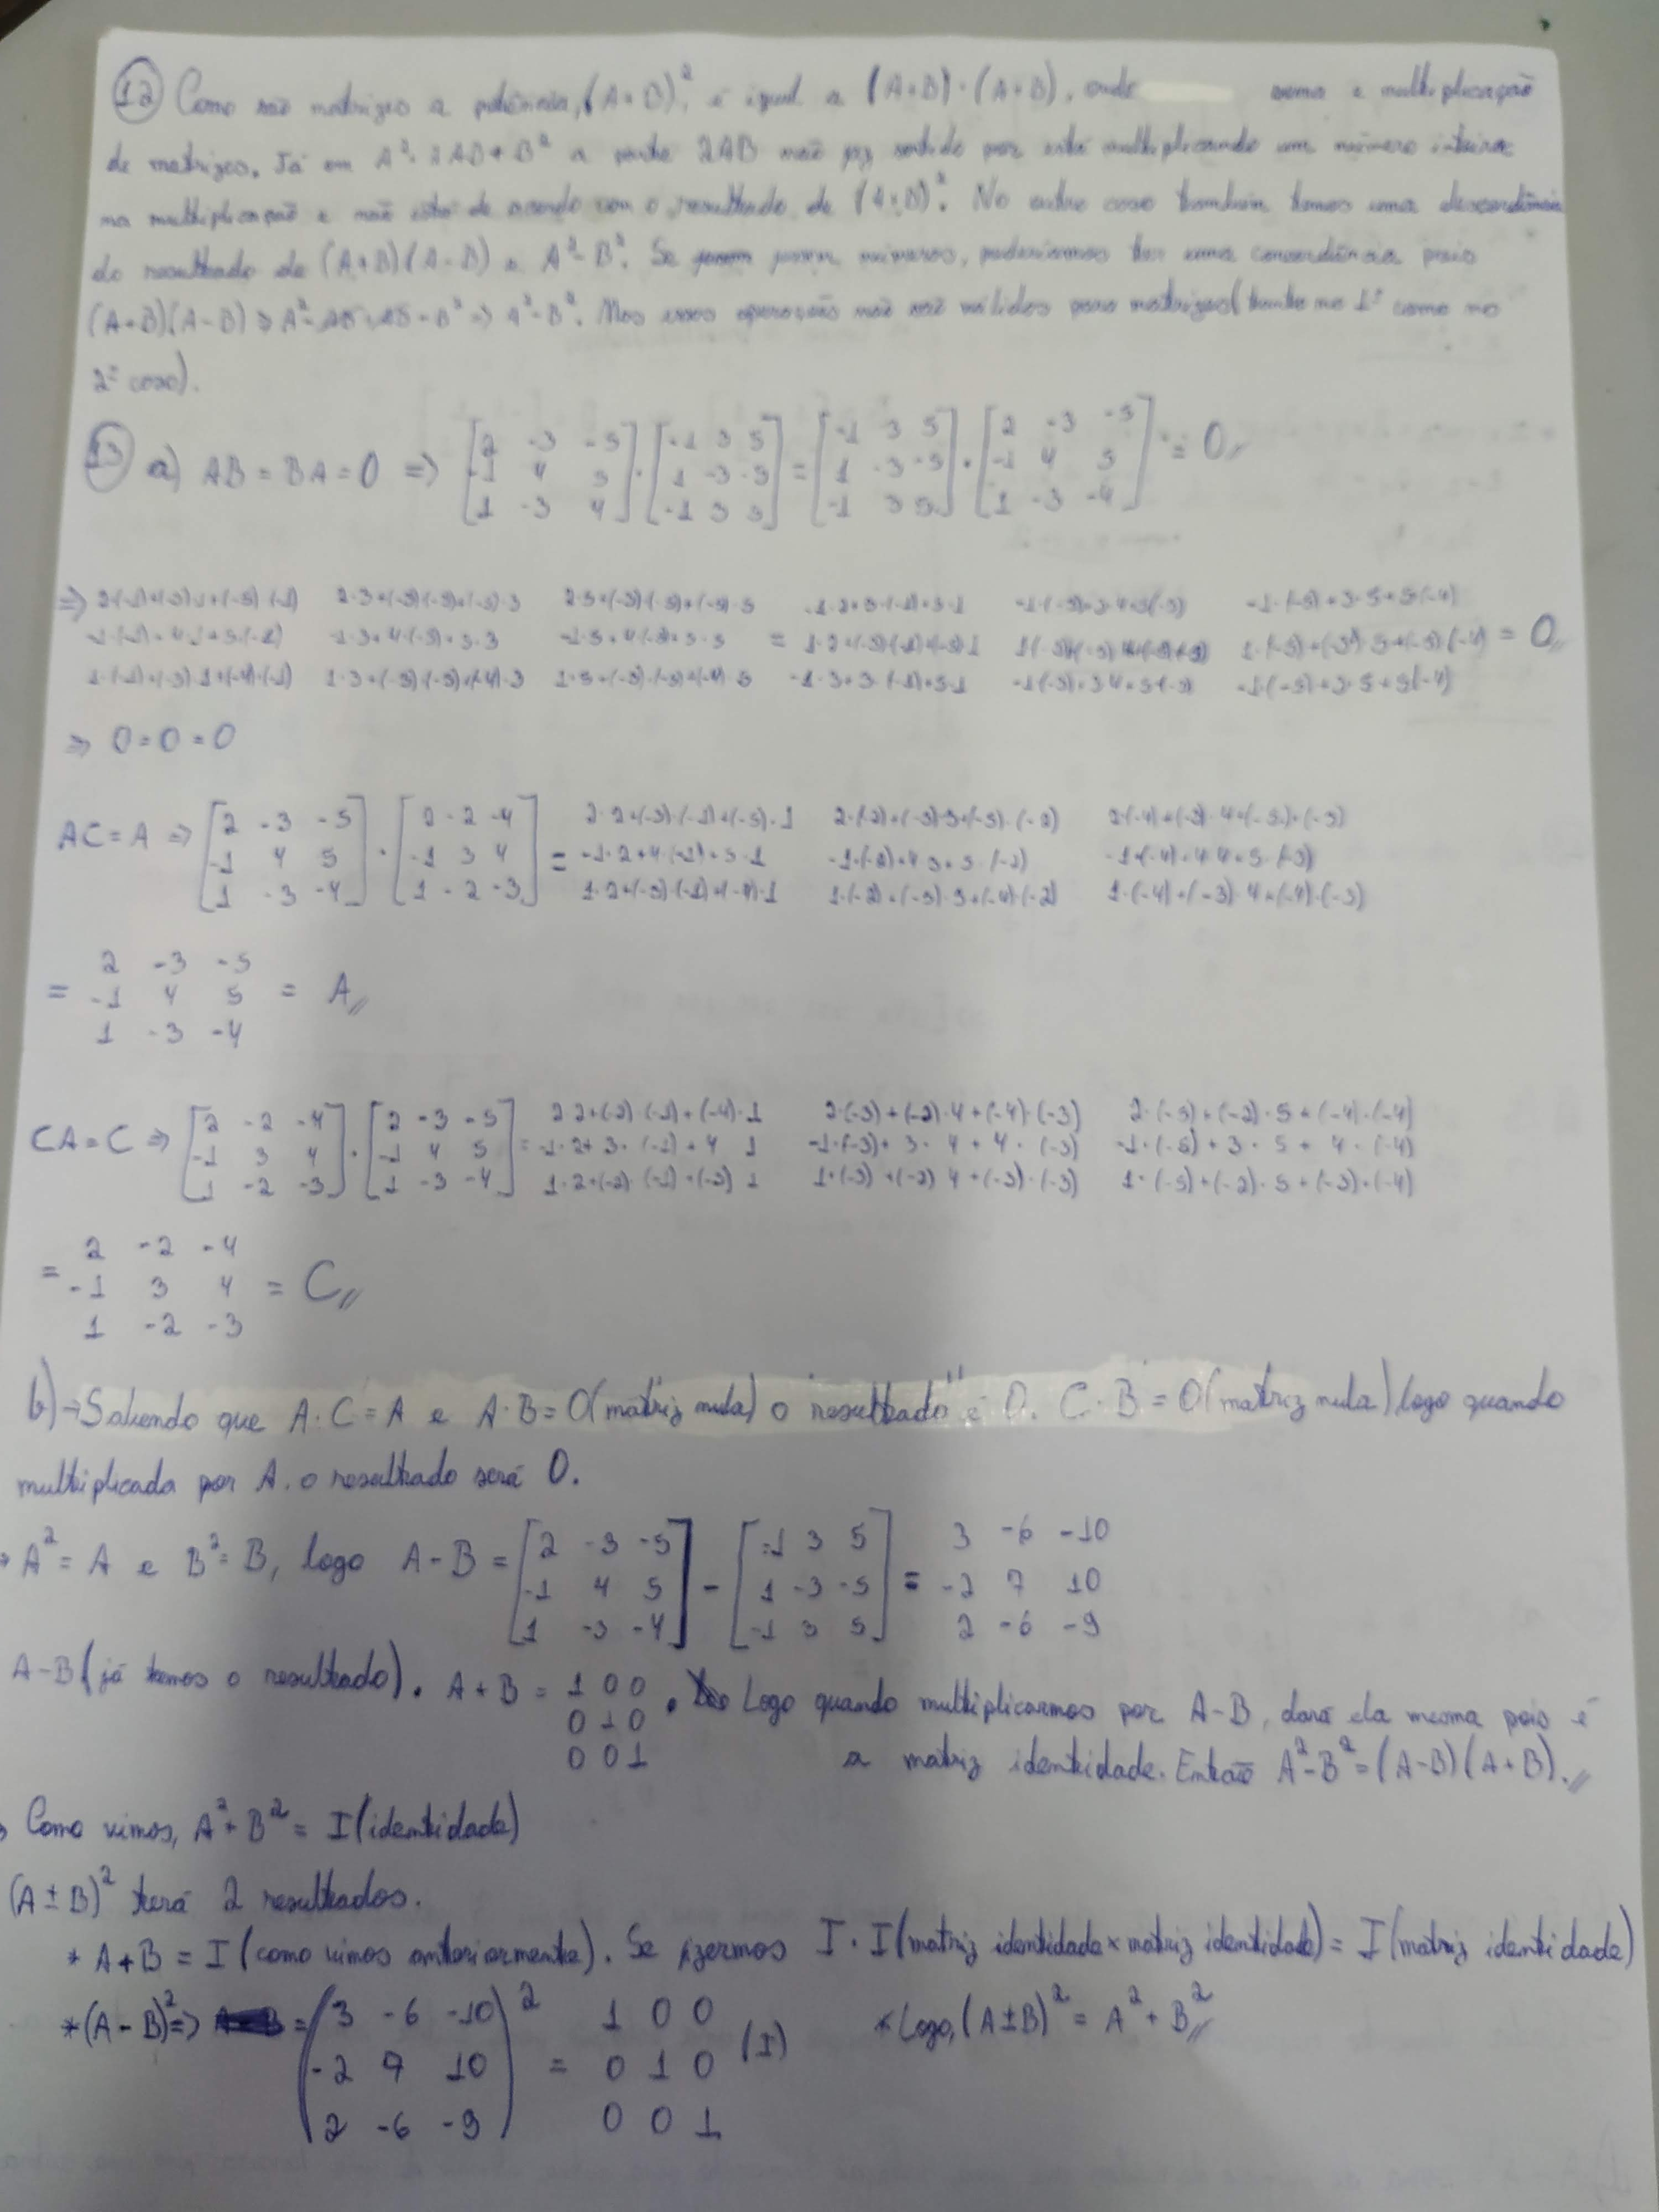 12 Como são matrizes a potência, (A+B)², é igual a (A+B)·(A+B), onde soma e multiplicação
de matrizes. Já em A²+2AB+B² a parte 2AB não faz sentido por está multiplicando um número inteiro
na multiplicação e não está de acordo com o resultado de (A+B)². No outro caso também temos uma discordância
do resultado de (A+B)(A-B) e A²-B². Se fossem números, poderíamos ter uma concordância pois
(A+B)(A-B) => A²-AB+AB-B² => A²-B². Mas essas operações não são válidas para matrizes (tanto no 1º como no
2º caso).
13 a) AB = BA = 0 => [2 -3 -5] · [-1 3 5] = [-1 3 5] · [2 -3 -5] = 0//
-1 4 5 1 -3 -5 1 -3 -5 -1 4 5
1 -3 4 -1 3 5 -1 3 5 1 -3 -4
=> 2·(-1)+(-3)·1+(-5)·(-1) 2·3+(-3)(-3)+(-5)·3 2·5+(-3)·(-5)+(-5)·5 -1·2+3·(-1)+5·1 -1·(-3)+3·4+5(-3) -1·(-5)+3·5+5(-4)
-1·(-1)+4·1+5·(-1) -1·3+4·(-3)+5·3 -1·5+4(-5)+5·5 = 1·2+(-3)(-1)+(-5)1 1·(-5)+(-3)·5+(-5)·(-4) = 0//
1·(-1)+(-3)·1+(-4)·(-1) 1·3+(-3)·(-3)+(-4)·3 1·5+(-3)·(-5)+(-4)·5 -1·3+3·(-1)+5·1 -1(-3)+3·4+5·(-3) -1·(-5)+3·5+5(-4)
=> 0=0=0
AC = A => [2 -3 -5] · [2 -2 -4] = 2·2+(-3)·(-1)+(-5)·1 2·(-2)+(-3)·3+(-5)·(-2) 2·(-4)+(-3)·4+(-5)·(-3)
-1 4 5 -1 3 4 -1·2+4·(-1)+5·1 -1·(-2)+4·3+5·(-2) -1·(-4)+4·4+5·(-3)
1 -3 -4 1 -2 -3 1·2+(-3)·(-1)+(-4)·1 1·(-2)+(-3)·3+(-4)·(-2) 1·(-4)+(-3)·4+(-4)·(-3)
2 -3 -5
= -1 4 5 = A//
1 -3 -4
CA = C => [2 -2 -4] · [2 -3 -5] = 2·2+(-2)·(-1)+(-4)·1 2·(-3)+(-2)·4+(-4)·(-3) 2·(-5)+(-2)·5+(-4)·(-4)
-1 3 4 -1 4 5 -1·2+3·(-1)+4 1 -1·(-3)+3·4+4·(-3) -1·(-5)+3·5+4·(-4)
1 -2 -3 1 -3 -4 1·2+(-2)·(-1)+(-3) 1 1·(-3)+(-2) 4+(-3)·(-3) 1·(-5)+(-2)·5+(-3)·(-4)
2 -2 -4
= -1 3 4 = C//
1 -2 -3
b) → Sabendo que A·C = A e A·B = 0 (matriz nula) o "resultado" é 0. C·B = 0 (matriz nula), logo quando
multiplicada por A, o resultado será 0.
→ A² = A e B² = B, logo A-B = [2 -3 -5] - [-1 3 5] = 3 -6 -10
-1 4 5 1 -3 -5 -2 7 10
1 -3 -4 -1 3 5 2 -6 -9
A-B (já temos o resultado). A+B = 1 0 0 . Logo quando multiplicarmos por A-B, dará ela mesma pois é
0 1 0
0 0 1 a matriz identidade. Então A²-B² = (A-B)(A+B).//
→ Como vimos, A²+B² = I (identidade)
(A±B)² terá 2 resultados.
* A+B = I (como vimos anteriormente). Se fizermos I·I (matriz identidade × matriz identidade) = I (matriz identidade)
* (A-B)² => = (3 -6 -10)² = 1 0 0 (I) * Logo, (A±B)² = A²+B²//
-2 7 10 0 1 0
2 -6 -9 0 0 1